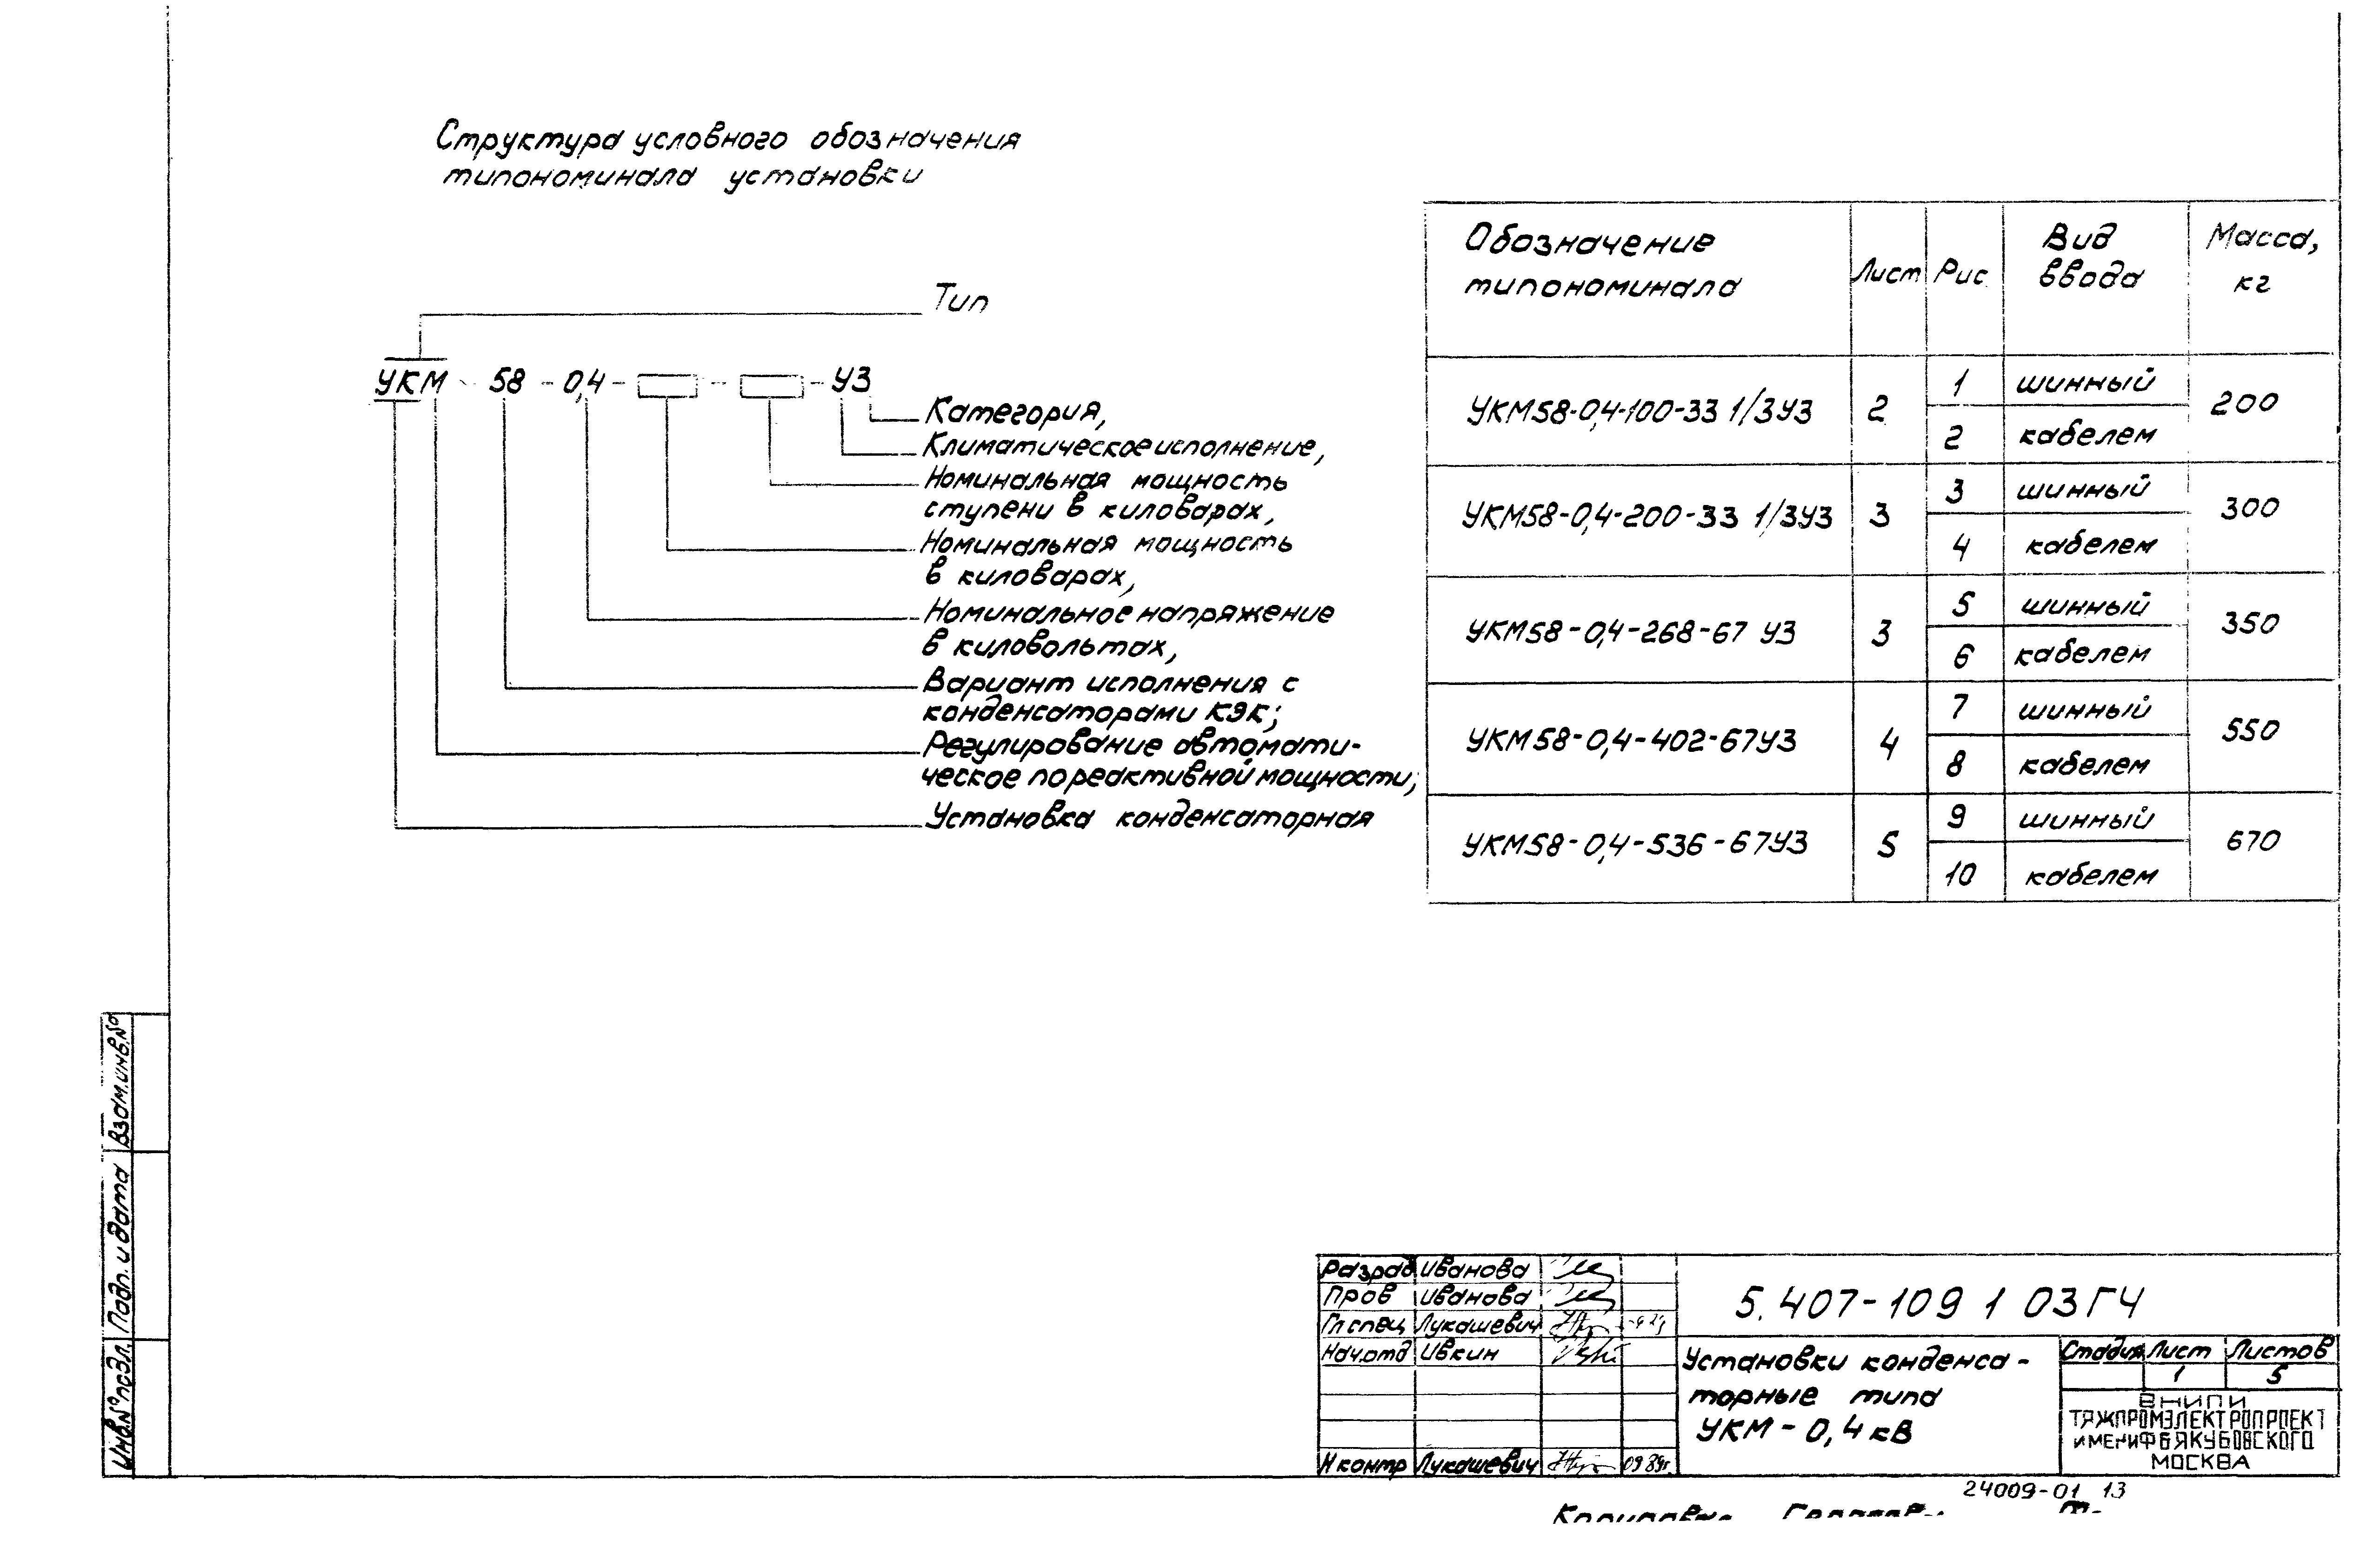 Структура условного обозначения
типономинала установки
Тип
УКМ 58 - 0,4 - - УЗ
Категория,
Климатическое исполнение,
Номинальная мощность
ступени в киловарах,
Номинальная мощность
в киловарах,
Номинальное напряжение
в киловольтах,
Вариант исполнения с
конденсаторами КЭК;
Регулирование автомати-
ческое по реактивной мощности;
Установка конденсаторная
Обозначение типономинала Лист Рис Вид ввода Масса, кг
УКМ58-0,4-100-33 1/3УЗ 2 1 шинный 200
2 кабелем
УКМ58-0,4-200-33 1/3УЗ 3 3 шинный 300
4 кабелем
УКМ58-0,4-268-67 УЗ 3 5 шинный 350
6 кабелем
УКМ58-0,4-402-67УЗ 4 7 шинный 550
8 кабелем
УКМ58-0,4-536-67УЗ 5 9 шинный 670
10 кабелем
Взам.инв.№
Подп. и дата
Инв.№подл.
Разраб Иванова
Пров Иванова
Гл спец Лукашевич
Нач.отд Ивкин
Н контр Лукашевич 09 89г.
5.407-109 1 03ГЧ
Установки конденса-
торные типа
УКМ-0,4кВ
Стадия Лист Листов
1 5
ВНИПИ
ТЯЖПРОМЭЛЕКТРОПРОЕКТ
ИМЕНИ Ф Б ЯКУБОВСКОГО
МОСКВА
24009-01 13